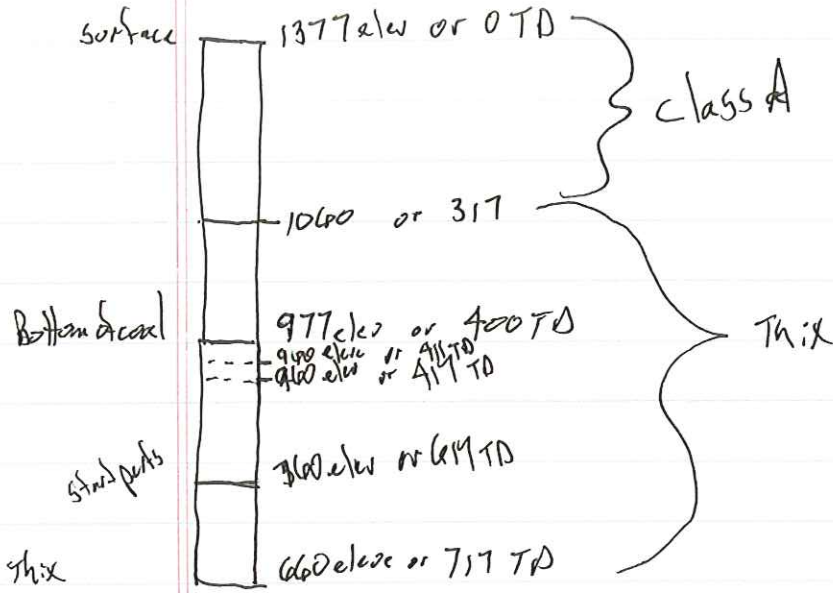 surface 1377 elev or 0 TD
class A
1060 or 317
Bottom of coal 977 elev or 400 TD
elev or 411 TD
960 elev or 417 TD
Thix
start perfs 760 elev or 617 TD
Thix 660 elev or 717 TD